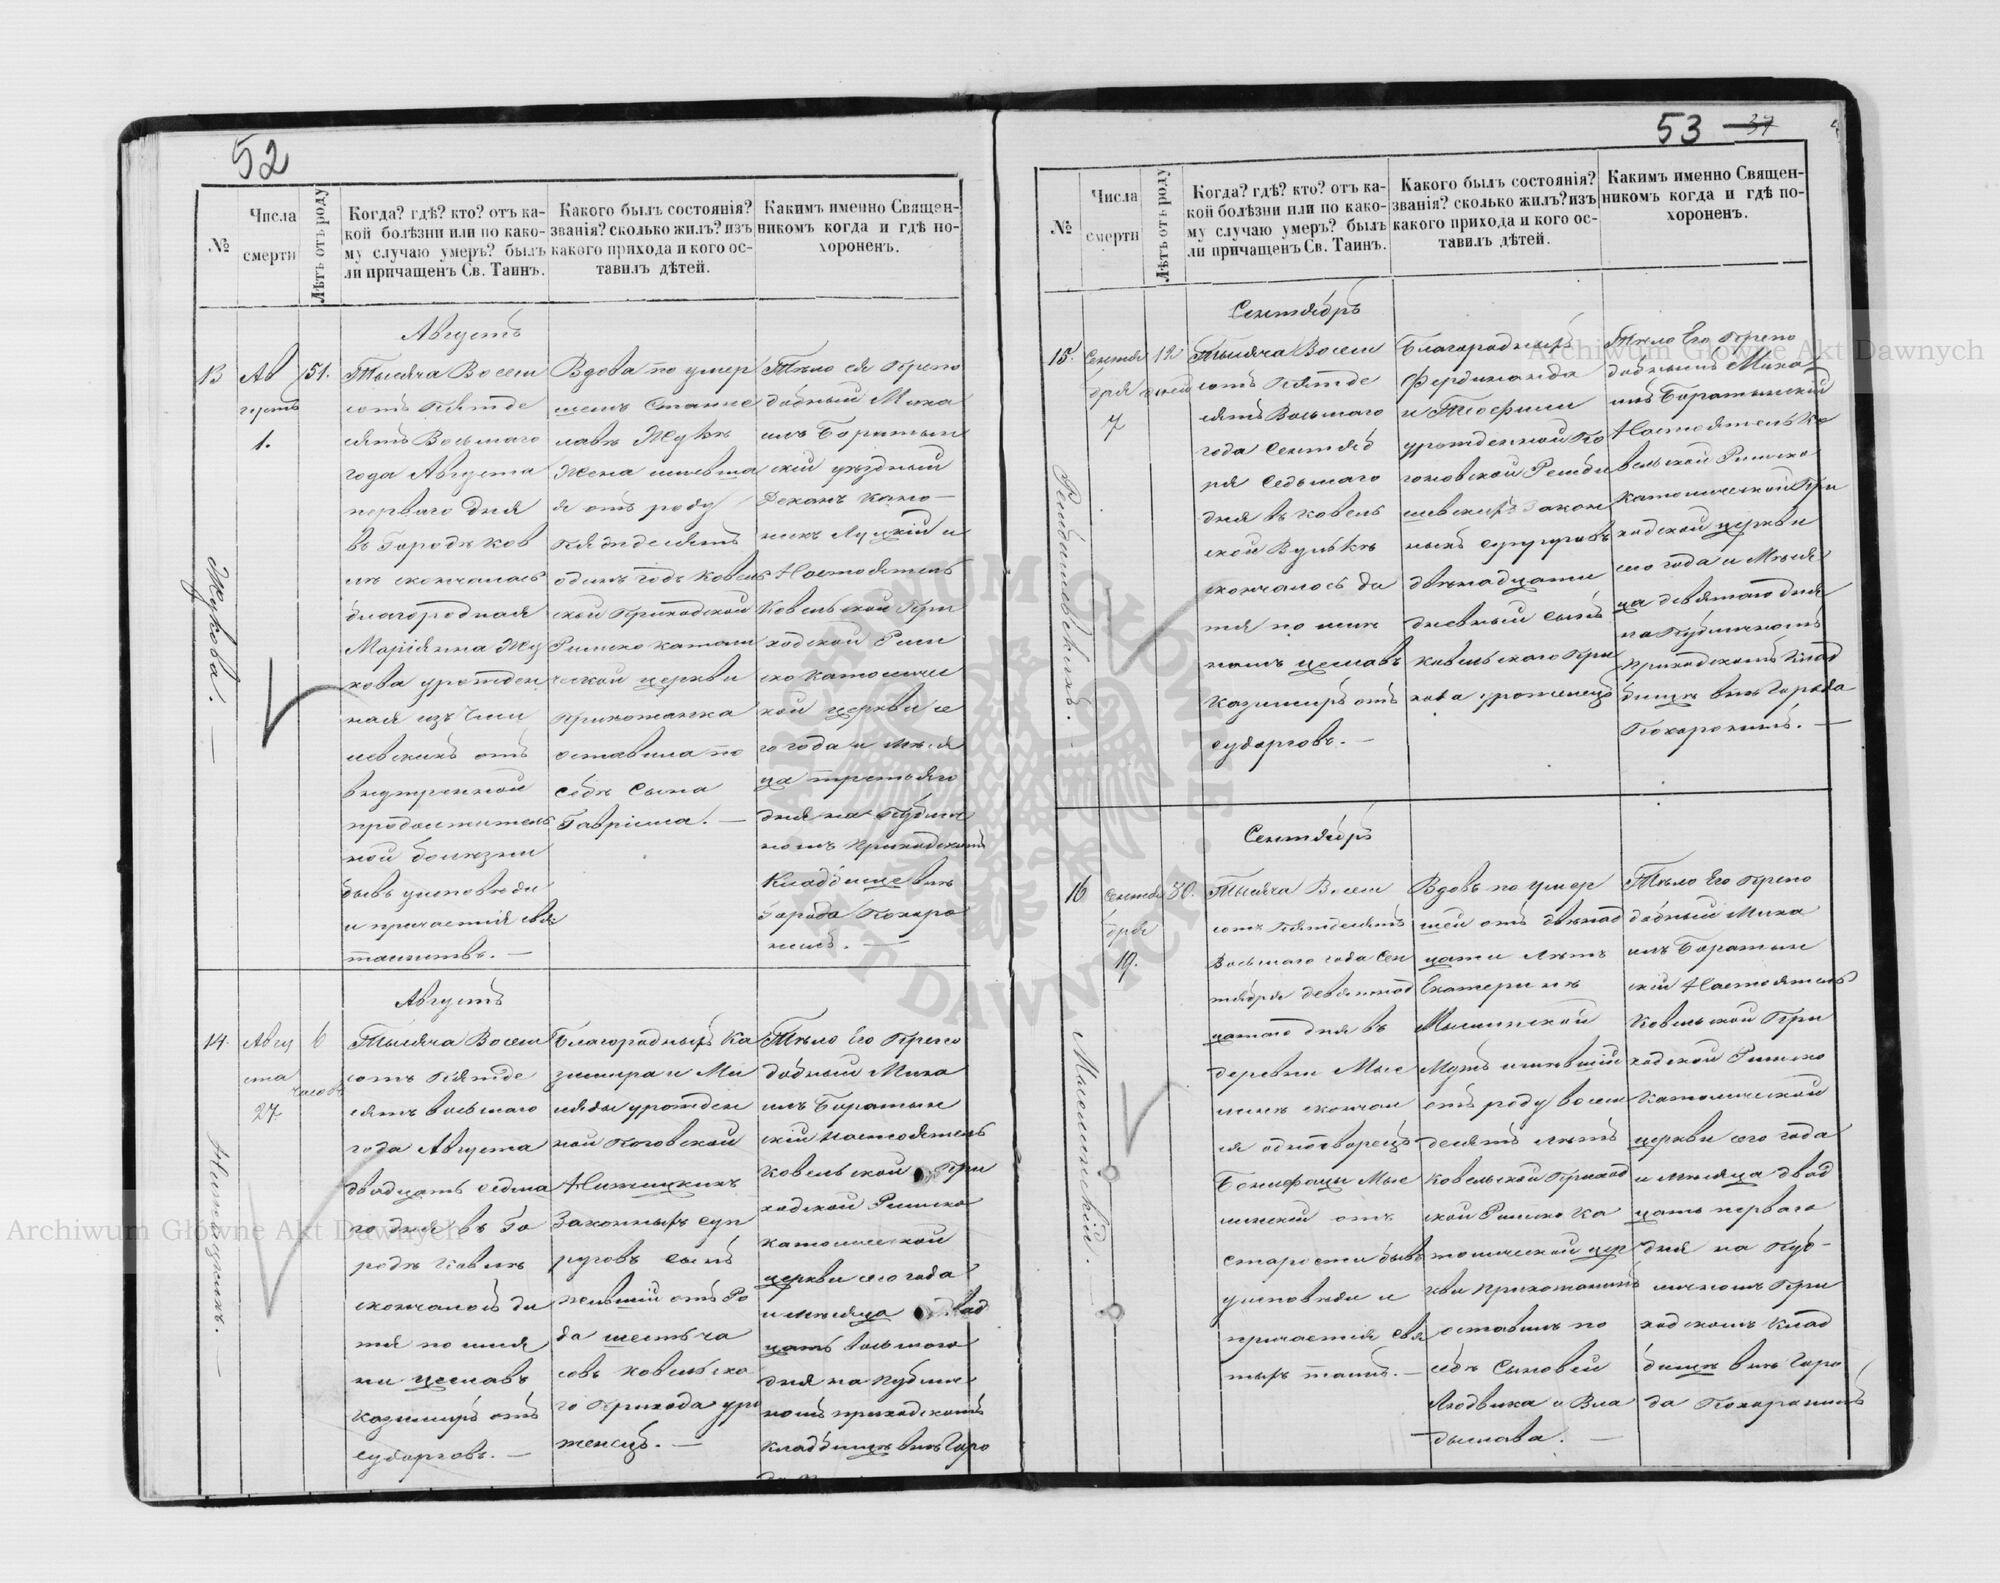 52
№
Числа
смерти
Лѣтъ отъ роду
Когда? гдѣ? кто? отъ ка-
кой болѣзни или по како-
му случаю умеръ? былъ
ли причащенъ Св. Таинъ.
Какого былъ состоянія?
званія? сколько жилъ? изъ
какого прихода и кого ос-
тавилъ дѣтей.
Какимъ именно Священ-
никомъ когда и гдѣ по-
хороненъ.
13
Ав
густъ
1.
51.
Жукова. —
Августъ
Тысяча Восем
сотъ Пятьде
сятъ Восьмаго
года Августа
перваго дня
въ Городѣ Ков
лѣ скончалась
благородная
Маріянна Жу
кова урожден
ная изъ
отъ
внутренной
продолжитель
ной болѣзни
бывъ исповѣди
и причастія свя
таинствъ. —
Вдова по умер
шемъ Станис
лавѣ Жукѣ
Жена имѣвша
я отъ роду
Пядьдесятъ
одинъ годъ Ковель
ской Приходской
Римско католи
ческой церкви
прихожанка
оставила по
себѣ Сына
Гавріила. —
Тѣло ея Препо
добный Миха
илъ Боратын
скій уѣздный
Деканъ Кано-
никъ Луцкій и
Настоятель
Ковельской При
ходской Рим
ско Католиче
кой церкви се
го года и мѣся
ца третьяго
дня на Публич
номъ Приходскомъ
Кладбище внѣ
города Похоро
нилъ. —
14.
Авгу
ста
27.
6
часовъ
Августъ
Тысяча Восем
сотъ Пятьде
сятъ восьмаго
года Августа
двадцать седма
го дня въ Го
родѣ Ковлѣ
скончалось ди
тя по имя
ни цеславъ
Казимиръ отъ
судорговъ. —
Благородныхъ Ка
зимира и Ми
урожден
ной Коговской
Законныхъ суп
руговъ сынъ
жившій отъ Ро
да шесть ча
совъ Ковельска
го Прихода уро
женецъ. —
Тѣло Его Препо
добный Миха
илъ Боратын
скій Настоятель
Ковельской При
ходской Римско
католической
церкви сего года
и мѣсяца двад
цать восьмаго
дня на Публич
номъ приходскомъ
кладбищѣ внѣ Горо
53
37
№
Числа
смерти
Лѣтъ отъ роду
Когда? гдѣ? кто? отъ ка-
кой болѣзни или по како-
му случаю умеръ? былъ
ли причащенъ Св. Таинъ.
Какого былъ состоянія?
званія? сколько жилъ? изъ
какого прихода и кого ос-
тавилъ дѣтей.
Какимъ именно Священ-
никомъ когда и гдѣ по-
хороненъ.
15.
Сентя
бря
7
12
дней
Сентябрь
Тысяча Восем
сотъ Пятьде
сятъ Восьмаго
года Сентяб
ря Седьмаго
дня въ Ковель
ской Вулькѣ
скончалось Ди
тя по имя
немъ цеславъ
Казимиръ отъ
судорговъ. —
Благородныхъ
Фердинанда
и Теофили
урожденной Ко
говской
законн
ныхъ супруговъ
двѣнадцати
дневный сынъ
Ковельскаго При
хода уроженецъ
Тѣло Его Препо
добный Миха
илъ Боратынскій
Настоятель Ко
вельской Римско
католической При
ходской церкви
сего года и Мѣся
ца девятаго дня
на Публичномъ
Приходскомъ Клад
бищѣ внѣ Города
Похоронилъ. —
16
Сентя
бря
19.
80.
Мыслинскій. —
Сентябрь
Тысяча Восем
сотъ Пятьдесятъ
Восьмаго года Сен
тября девятнад
цатаго дня въ
деревни Мыс
линѣ скончал
ся однодворецъ
Бонифацы Мыс
линскій отъ
старости бывъ
исповѣди и
причастія свя
тыхъ таинъ. —
Вдовъ по умер
шей отъ двѣнад
цати лѣтъ
Екатеринѣ
Мыслинской
Мужъ имѣвшій
отъ роду восем
десятъ лѣтъ
Ковельской Приход
ской Римско Ка
толической цер
кви Прихожанинъ
оставилъ по
себѣ Сыновей
Людвика и Вла
дыслава. —
Тѣло Его Препо
добный Миха
илъ Боратын
скій Настоятель
Ковельской При
ходской Римско
Католической
церкви сего года
и Мѣсяца двад
цать перваго
дня на Пуб-
личномъ При
ходскомъ Клад
бищѣ внѣ Горо
да Похоронилъ
Archiwum Główne Akt Dawnych
Archiwum Główne Akt Dawnych
ARCHIWUM GŁÓWNE AKT DAWNYCH